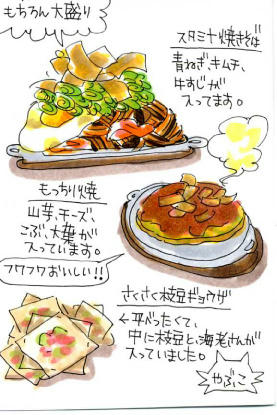 もちろん大盛り
スタミナ焼きそば
青ねぎ、キムチ、
牛すじが
入ってます。
もっちり焼
山芋、チーズ、
こぶ、大葉が
入っています。
フワフワおいしい!!
さくさく枝豆ギョウザ
←平べったくて、
中に枝豆と、海老さんが
入っていました。
やぶこ